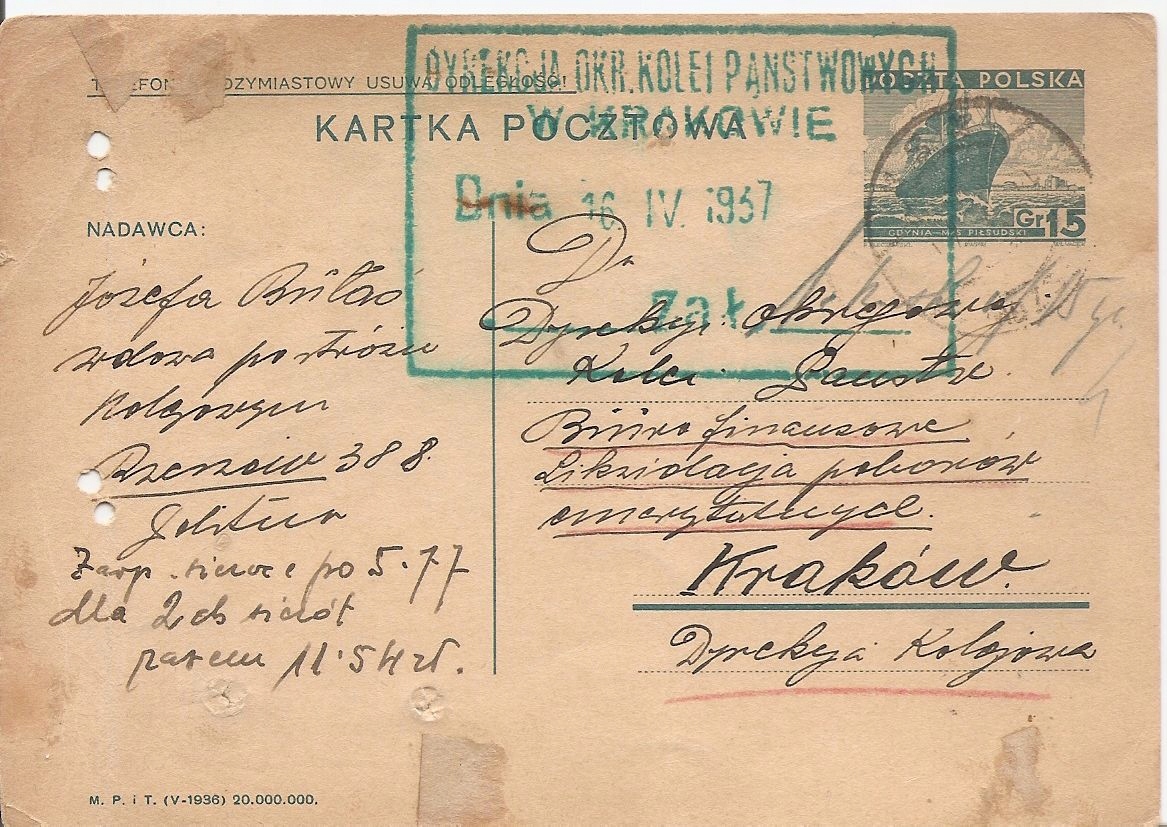 TELEFON DZYMIASTOWY USUWA ODLEGŁOŚĆ!
DYREKCJA OKR. KOLEI PAŃSTWOWYCH
W KRAKOWIE
Dnia 16 IV. 1937
Zał.
POCZTA POLSKA
Gr. 15
GDYNIA - M/S PIŁSUDSKI
KARTKA POCZTOWA
NADAWCA:
Józefa
wdowa po stróżu
Kolejowym
Rzeszów 388.
Zarp. sieroce po 5.77
dla 2ch sierót
razem 11.54 zł.
Do
Dyrekcyi okręgowej
Kolei Państw.
Biuro finansowe
Likwidacja poborów
emerytalnych.
Kraków.
Dyrekcja Kolejowa
M. P. i T. (V-1936) 20.000.000.